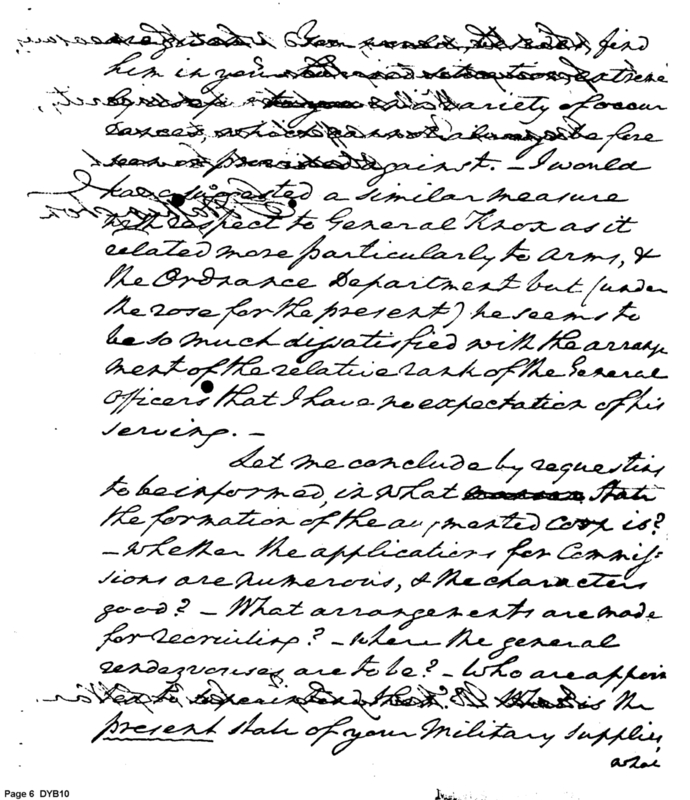 find
him in your
variety of occur
rences, which cannot always be fore
seen or provided against. – I would
have suggested a similar measure
with respect to General Knox as it
related more particularly to Arms, &
the Ordnance Department but (under
the rose for the present) he seems to
be so much dissatisfied with the arrange
ment of the relative rank of the General
Officers that I have no expectation of his
serving. –
Let me conclude by requesting
to be informed, in what State
the formation of the augmented Corps is?
– Whether the applications for Commis-
sions are numerous, & the characters
good? – What arrangements are made
for recruiting? – Where the general
rendezvouses are to be? – Who are appoin
ted to superintend them? is the
present state of your Military Supplies
what
Page 6 DYB10